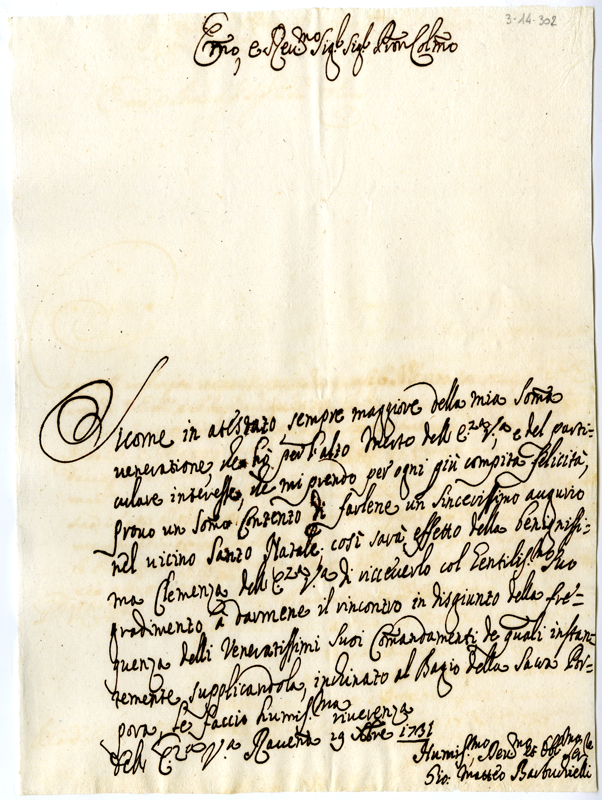 3-14-302
Emo, e Reu.mo Sig.r Sig.r Pron Colmo
Sicome in atestato sempre maggiore della mia Soma
veneratione, che hò per l'alto Merto dell'E.za V.ra, e del parti-
culare interesse, che mi prendo per ogni più compita felicità,
provo un somo Contento di farlene un sincerissimo augurio
nel vicino Santo Natale. così sarà effetto della benignissi-
ma Clemenza dell'E.za V.ra di riceverlo col Gentiliss.mo Suo
gradimento à darmene il rincontro in disgiunto della fre=
quenza delli Veneratissimi Suoi Comandamenti de quali instan-
temente supplicandola, inchinato al Bagio della Sacra Por-
pora, Le faccio humiss.ma riverenza
dell'E.za V.ra Ravena 19 Xbre 1731
Humiss.mo, Deu.mo et Obb.mo Ser.re
Gio. Matteo